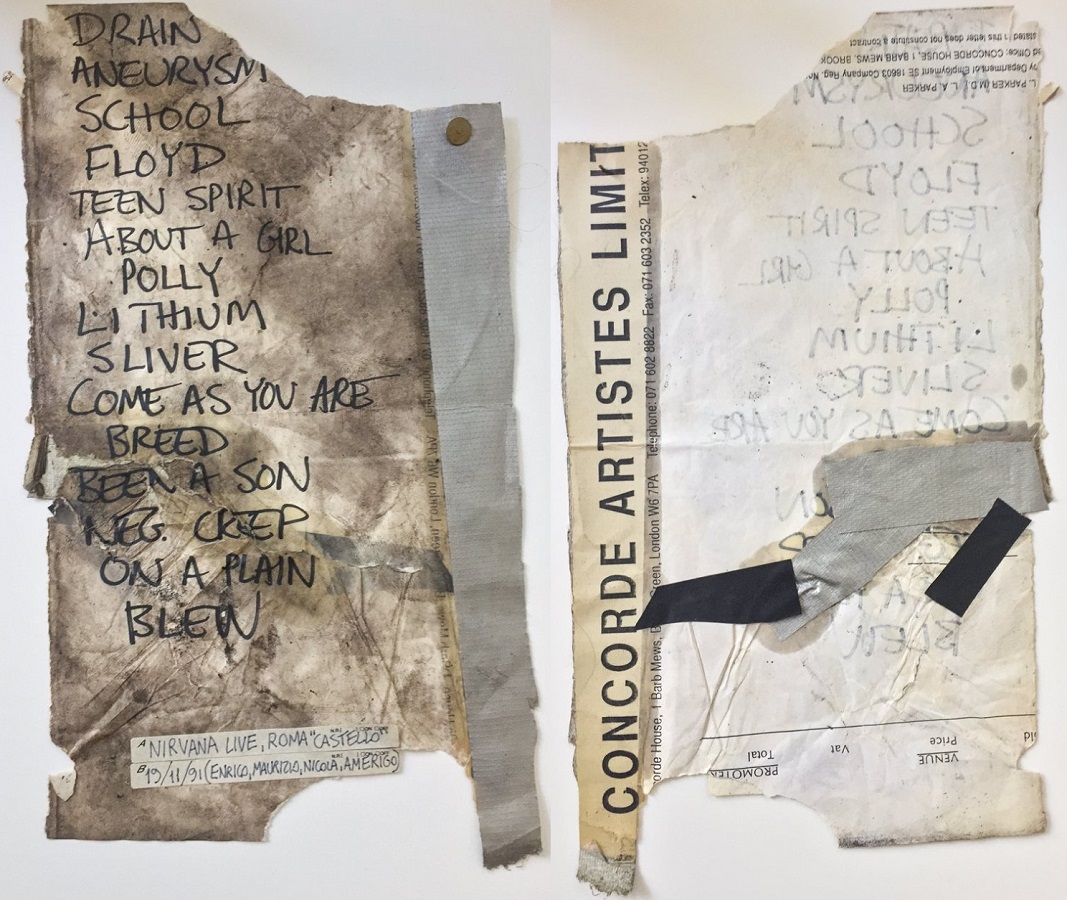 DRAIN
ANEURYSM
SCHOOL
FLOYD
TEEN SPIRIT
ABOUT A GIRL
POLLY
LITHIUM
SLIVER
COME AS YOU ARE
BREED
BEEN A SON
NEG. CREEP
ON A PLAIN
BLEW
A NIRVANA LIVE, ROMA "CASTELLO"
B 19/11/91 (ENRICO, MAURIZIO, NICOLA, AMERIGO
L. PARKER (M.D.) L. A. PARKER
by Department of Employment SE 18603 Company Reg. No
Office: CONCORDE HOUSE, 1 BARB MEWS, BROOK
stated this letter does not constitute a contract
ANEURYSM
SCHOOL
FLOYD
TEEN SPIRIT
ABOUT A GIRL
POLLY
LITHIUM
SLIVER
COME AS YOU ARE
BLEW
CONCORDE ARTISTES LIMIT
orde House, 1 Barb Mews, Green, London W6 7PA Telephone: 071 602 8822 Fax: 071 603 2352 Telex: 94012
VENUE
Price
Vat
Total
PROMOTER